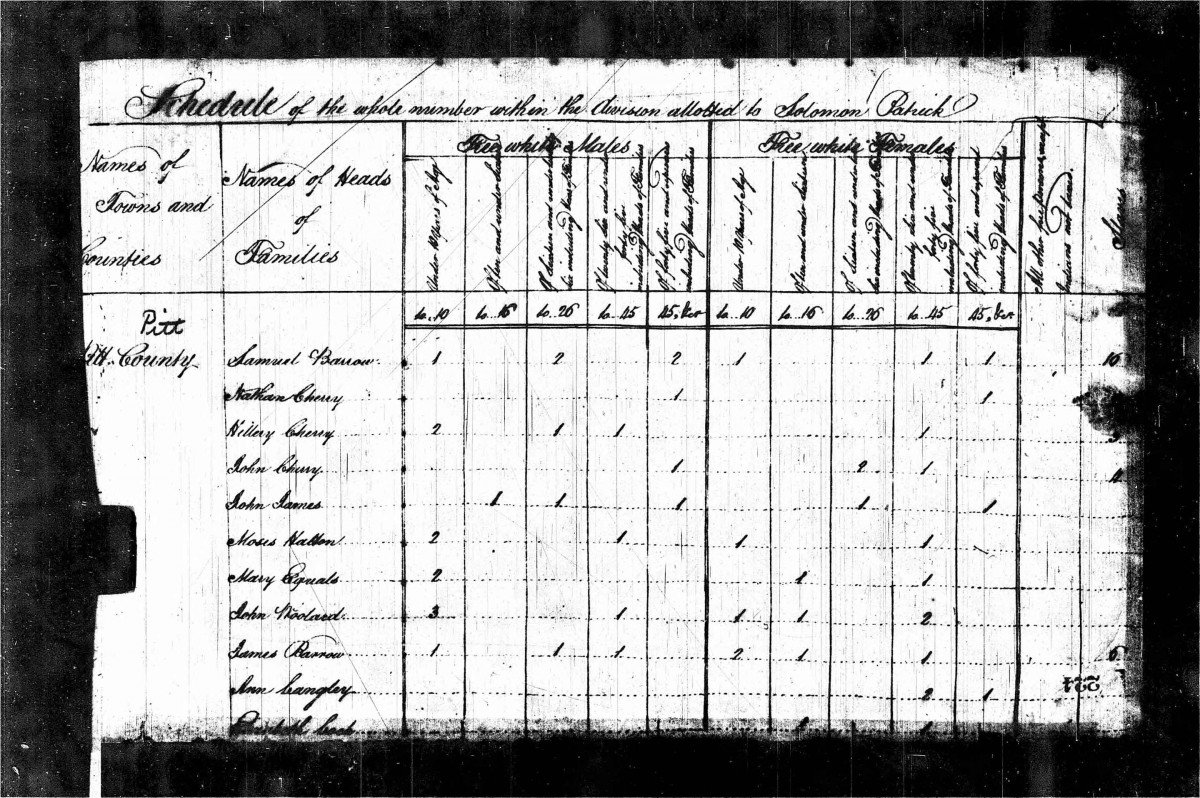 Schedule of the whole number within the division allotted to Solomon Patrick
Names of Towns and Counties
Names of Heads of Families
Free white Males
Free white Females
Under 10 years of age
Of ten and under sixteen
Of sixteen and under twenty six including heads of families
Of twenty six and under forty five including heads of families
Of forty five and upwards including heads of families
Under 10 years of age
Of ten and under sixteen
Of sixteen and under twenty six including heads of families
Of twenty six and under forty five including heads of families
Of forty five and upwards including heads of families
All other free persons except Indians not taxed
Slaves
to 10 to 16 to 26 to 45 45 &c to 10 to 16 to 26 to 45 45 &c
Pitt
Pitt County Samuel Barrow 1 2 2 1 1 1 10
Nathan Cherry 1 1
Hillery Cherry 2 1 1 1
John Cherry 1 2 1
John James 1 1 1 1 1
Moses Hatten 2 1 1 1
Mary Equals 2 1 1
John Woolard 3 1 1 1 2
James Barrow 1 1 1 2 1 1 6
Ann Langley 2 1
221
1 1